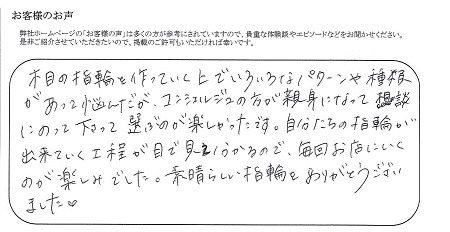 お客様のお声
弊社ホームページの「お客様の声」は多くの方が参考にされていますので、貴重な体験談やエピソードなどをお聞かせください。
是非ご紹介させていただきたいので、掲載のご許可もいただければ幸いです。
木目の指輪を作っていく上でいろいろなパターンや種類
があって悩んだが、コンシェルジュの方が親身になって相談
にのって下さって選ぶのが楽しかったです。自分たちの指輪が
出来ていく工程が目で見て分かるので、毎回お店にいく
のが楽しみでした。素晴らしい指輪をありがとうござい
ました♡